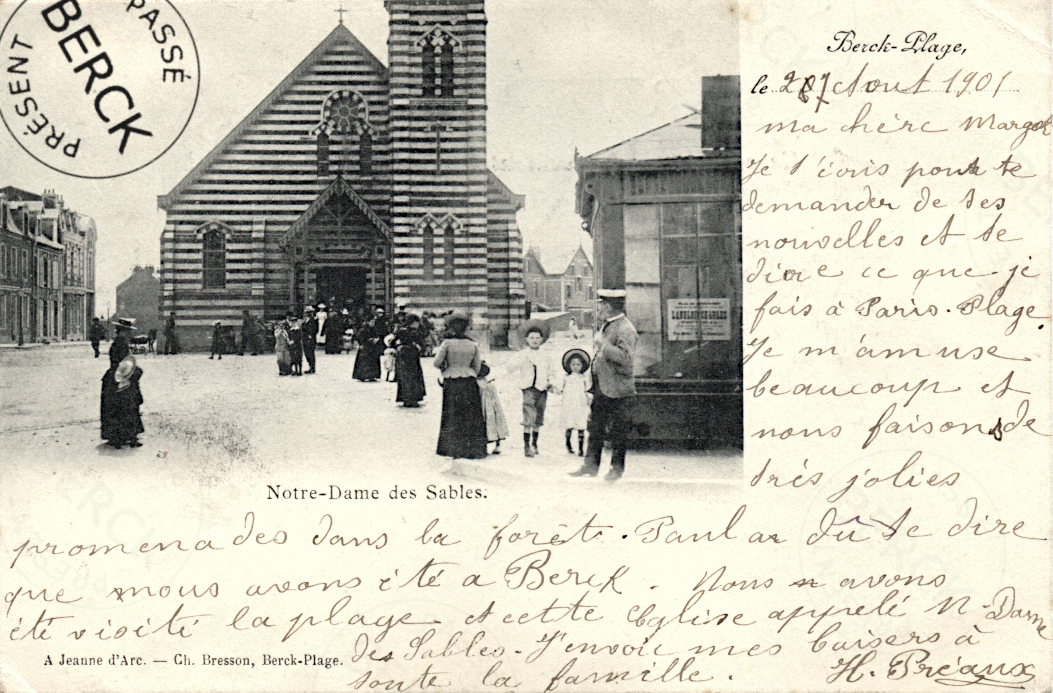 PASSÉ
BERCK
PRÉSENT
Berck-Plage,
le 27 Aout 1901
ma chère Margot
Je t'écris pour te
demander de tes
nouvelles et te
dire ce que je
fais à Paris-Plage
Je m'amuse
beaucoup et
nous faisons de
très jolies
Notre-Dame des Sables.
promenades dans la forêt. Paul a dû te dire
que nous avons été a Berck. Nous avons
été visité la plage et cette Eglise appelé N-Dame
des Sables. J'envoie mes baisers à
A Jeanne d'Arc. — Ch. Bresson, Berck-Plage.
toute la famille. H. Préaux